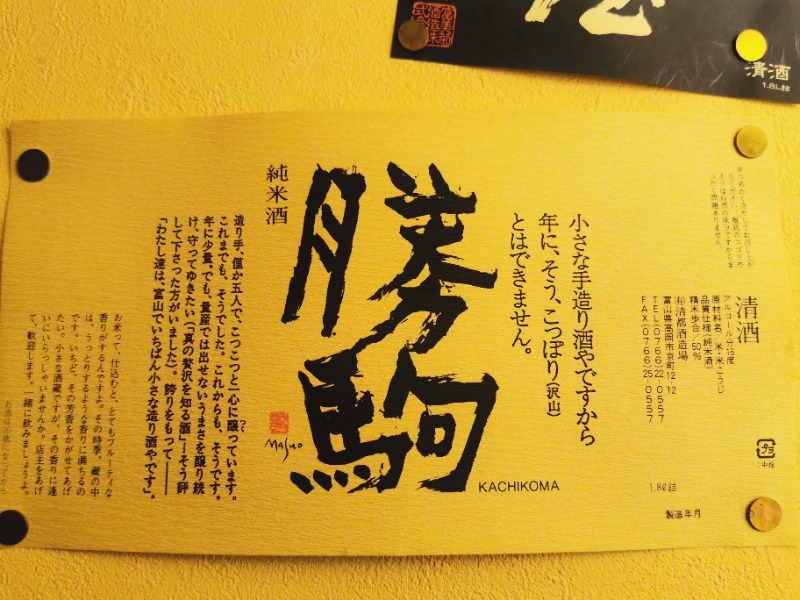 清酒
1.8L詰
※つめたく冷やしてお召し上が
清酒
アルコール分/16度
原材料名/米・米こうじ
品質仕様(純米酒)
精米歩合/50%
(有)清都酒造場
富山県高岡市京町12-12
TEL(0766)22-0557
FAX(0766)25-0557
1.8ℓ詰
製造年月
小さな手造り酒やですから
年に、そう、こっぽり(沢山)
とはできません。
勝駒
KACHIKOMA
Masuo
純米酒
造り手、僅か五人で、こつこつと一心に醸っています。
これまでも、そうでした。これからも、そうです。
年に少量、でも、量産では出せないうまさを醸り続
け、守ってゆきたい(「真の贅沢を知る酒」―そう評
して下さった方がいました)。誇りをもって――
「わたし達は、富山でいちばん小さな造り酒やです」。
お米って、仕込むと、とてもフルーティな
香りがするんですよ。その時季、蔵の中
は、うっとりするような香りに満ちるの
です。いちど、その芳香をかがせてあげ
たい。小さな酒蔵ですが、その香りに逢
いにいらっしゃいませんか。店主をあげ
て、歓迎します。一緒に飲みましょうよ。